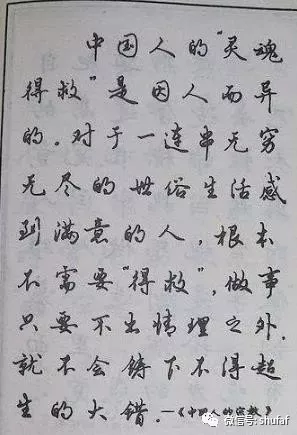 中国人的“灵魂
得救”是因人而异
的。对于一连串无穷
无尽的世俗生活感
到满意的人，根本
不需要“得救”，做事
只要不出情理之外，
就不会铸下不得超
生的大错。—《中国人的宗教》
微信号: shufaf